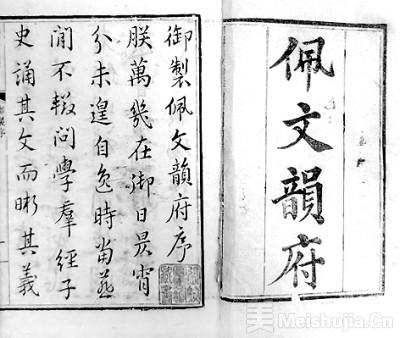 佩文韻府
御製佩文韻府序
朕萬幾在御日昃宵
分未遑自逸時當燕
閒不輟問學羣經子
史誦其文而晰其義
美 Meishujia.Cn